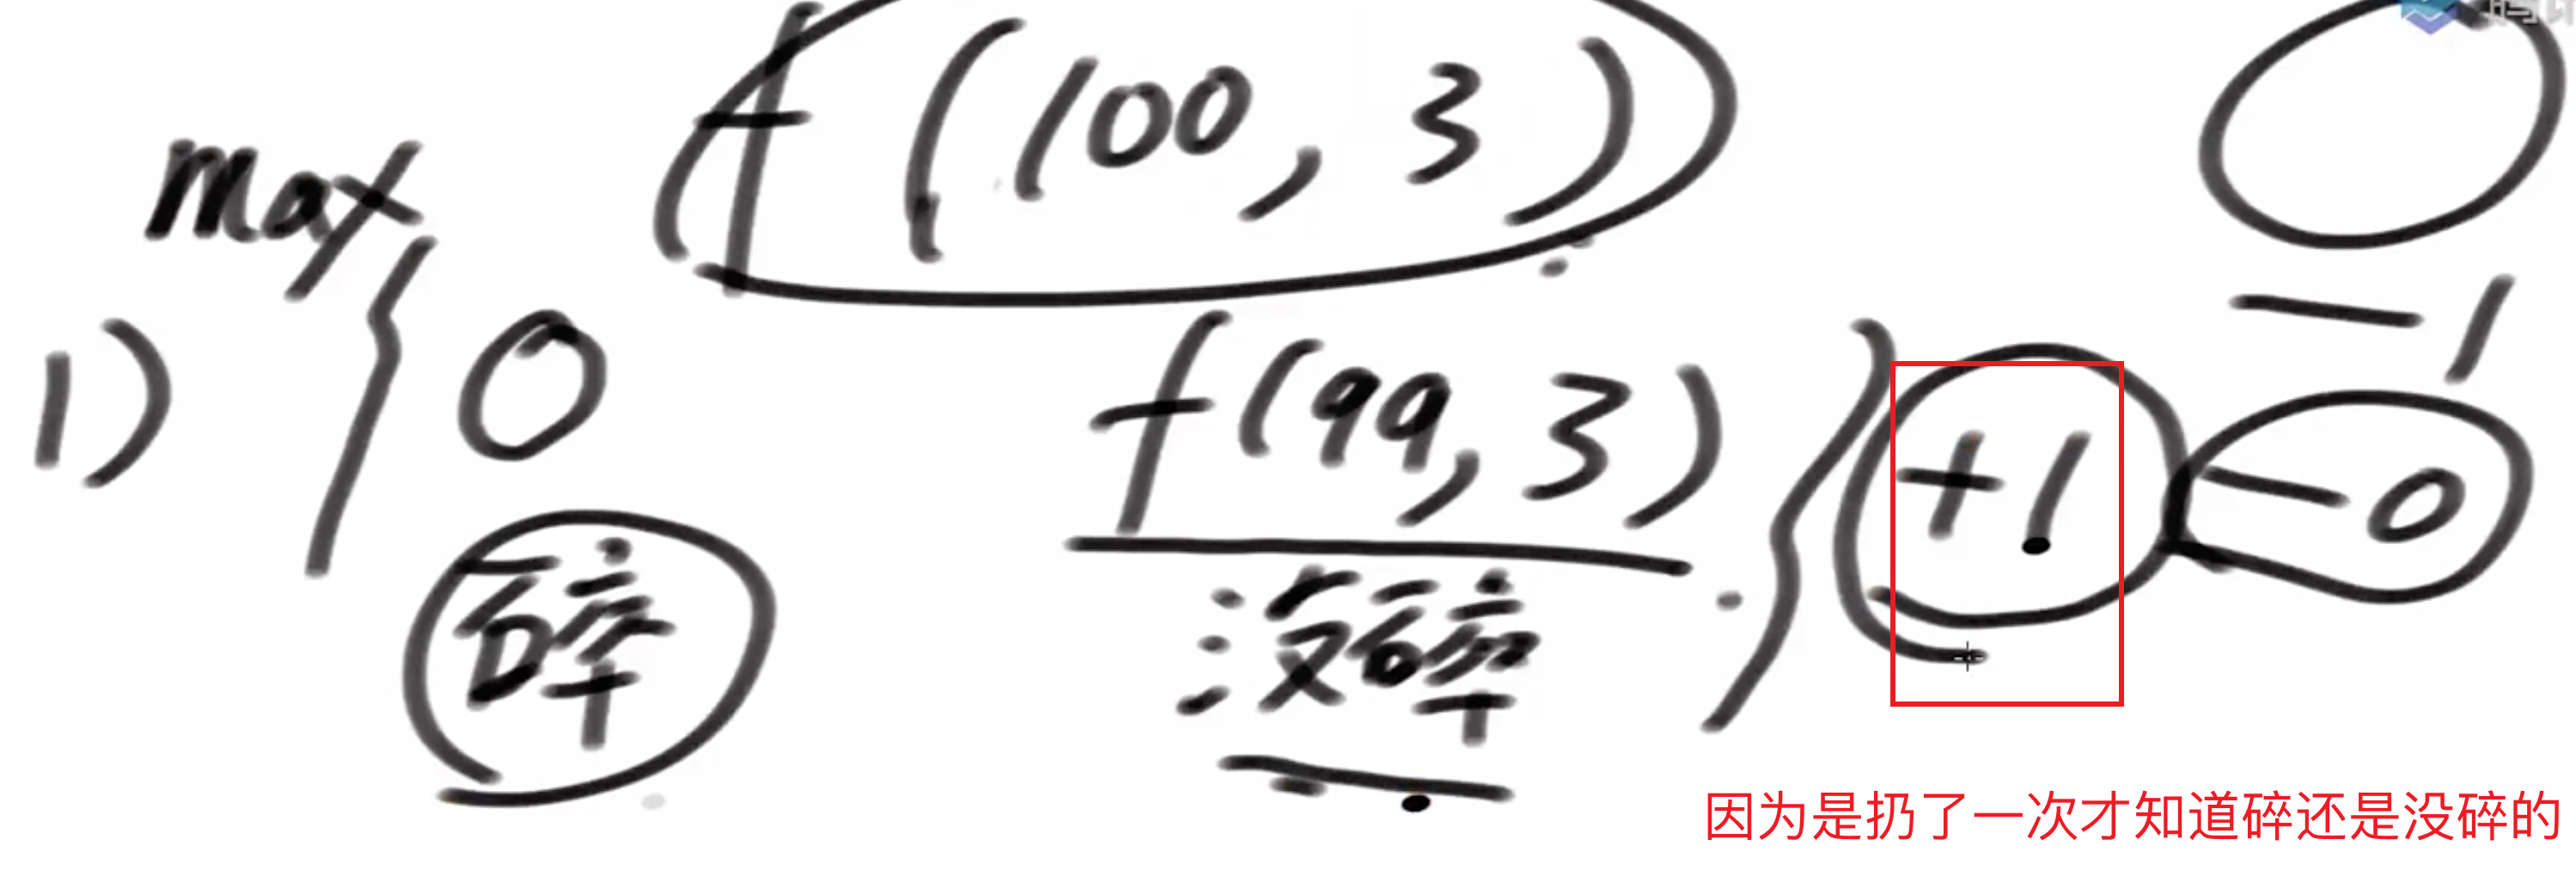 f(100,3)
max
1) { 0 f(99,3) } +1 -0
-1
碎 没碎
因为是扔了一次才知道碎还是没碎的